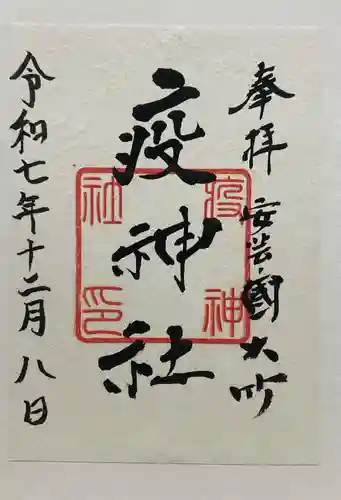 奉拝 安芸國大竹
疫神社
疫神
社印
令和七年十二月八日